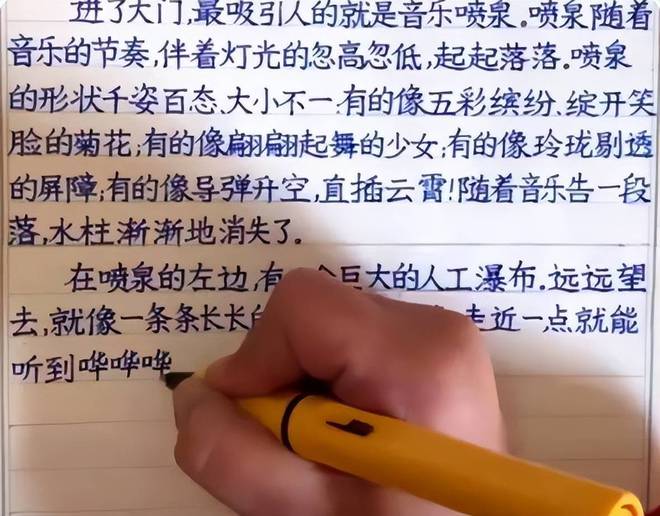 进了大门,最吸引人的就是音乐喷泉.喷泉随着
音乐的节奏,伴着灯光的忽高忽低,起起落落.喷泉
的形状千姿百态、大小不一.有的像五彩缤纷、绽开笑
脸的菊花;有的像翩翩起舞的少女;有的像玲珑剔透
的屏障;有的像导弹升空,直插云霄!随着音乐告一段
落,水柱渐渐地消失了。
在喷泉的左边,有 个巨大的人工瀑布.远远望
去,就像一条条长长的 走近一点就能
听到哗哗哗